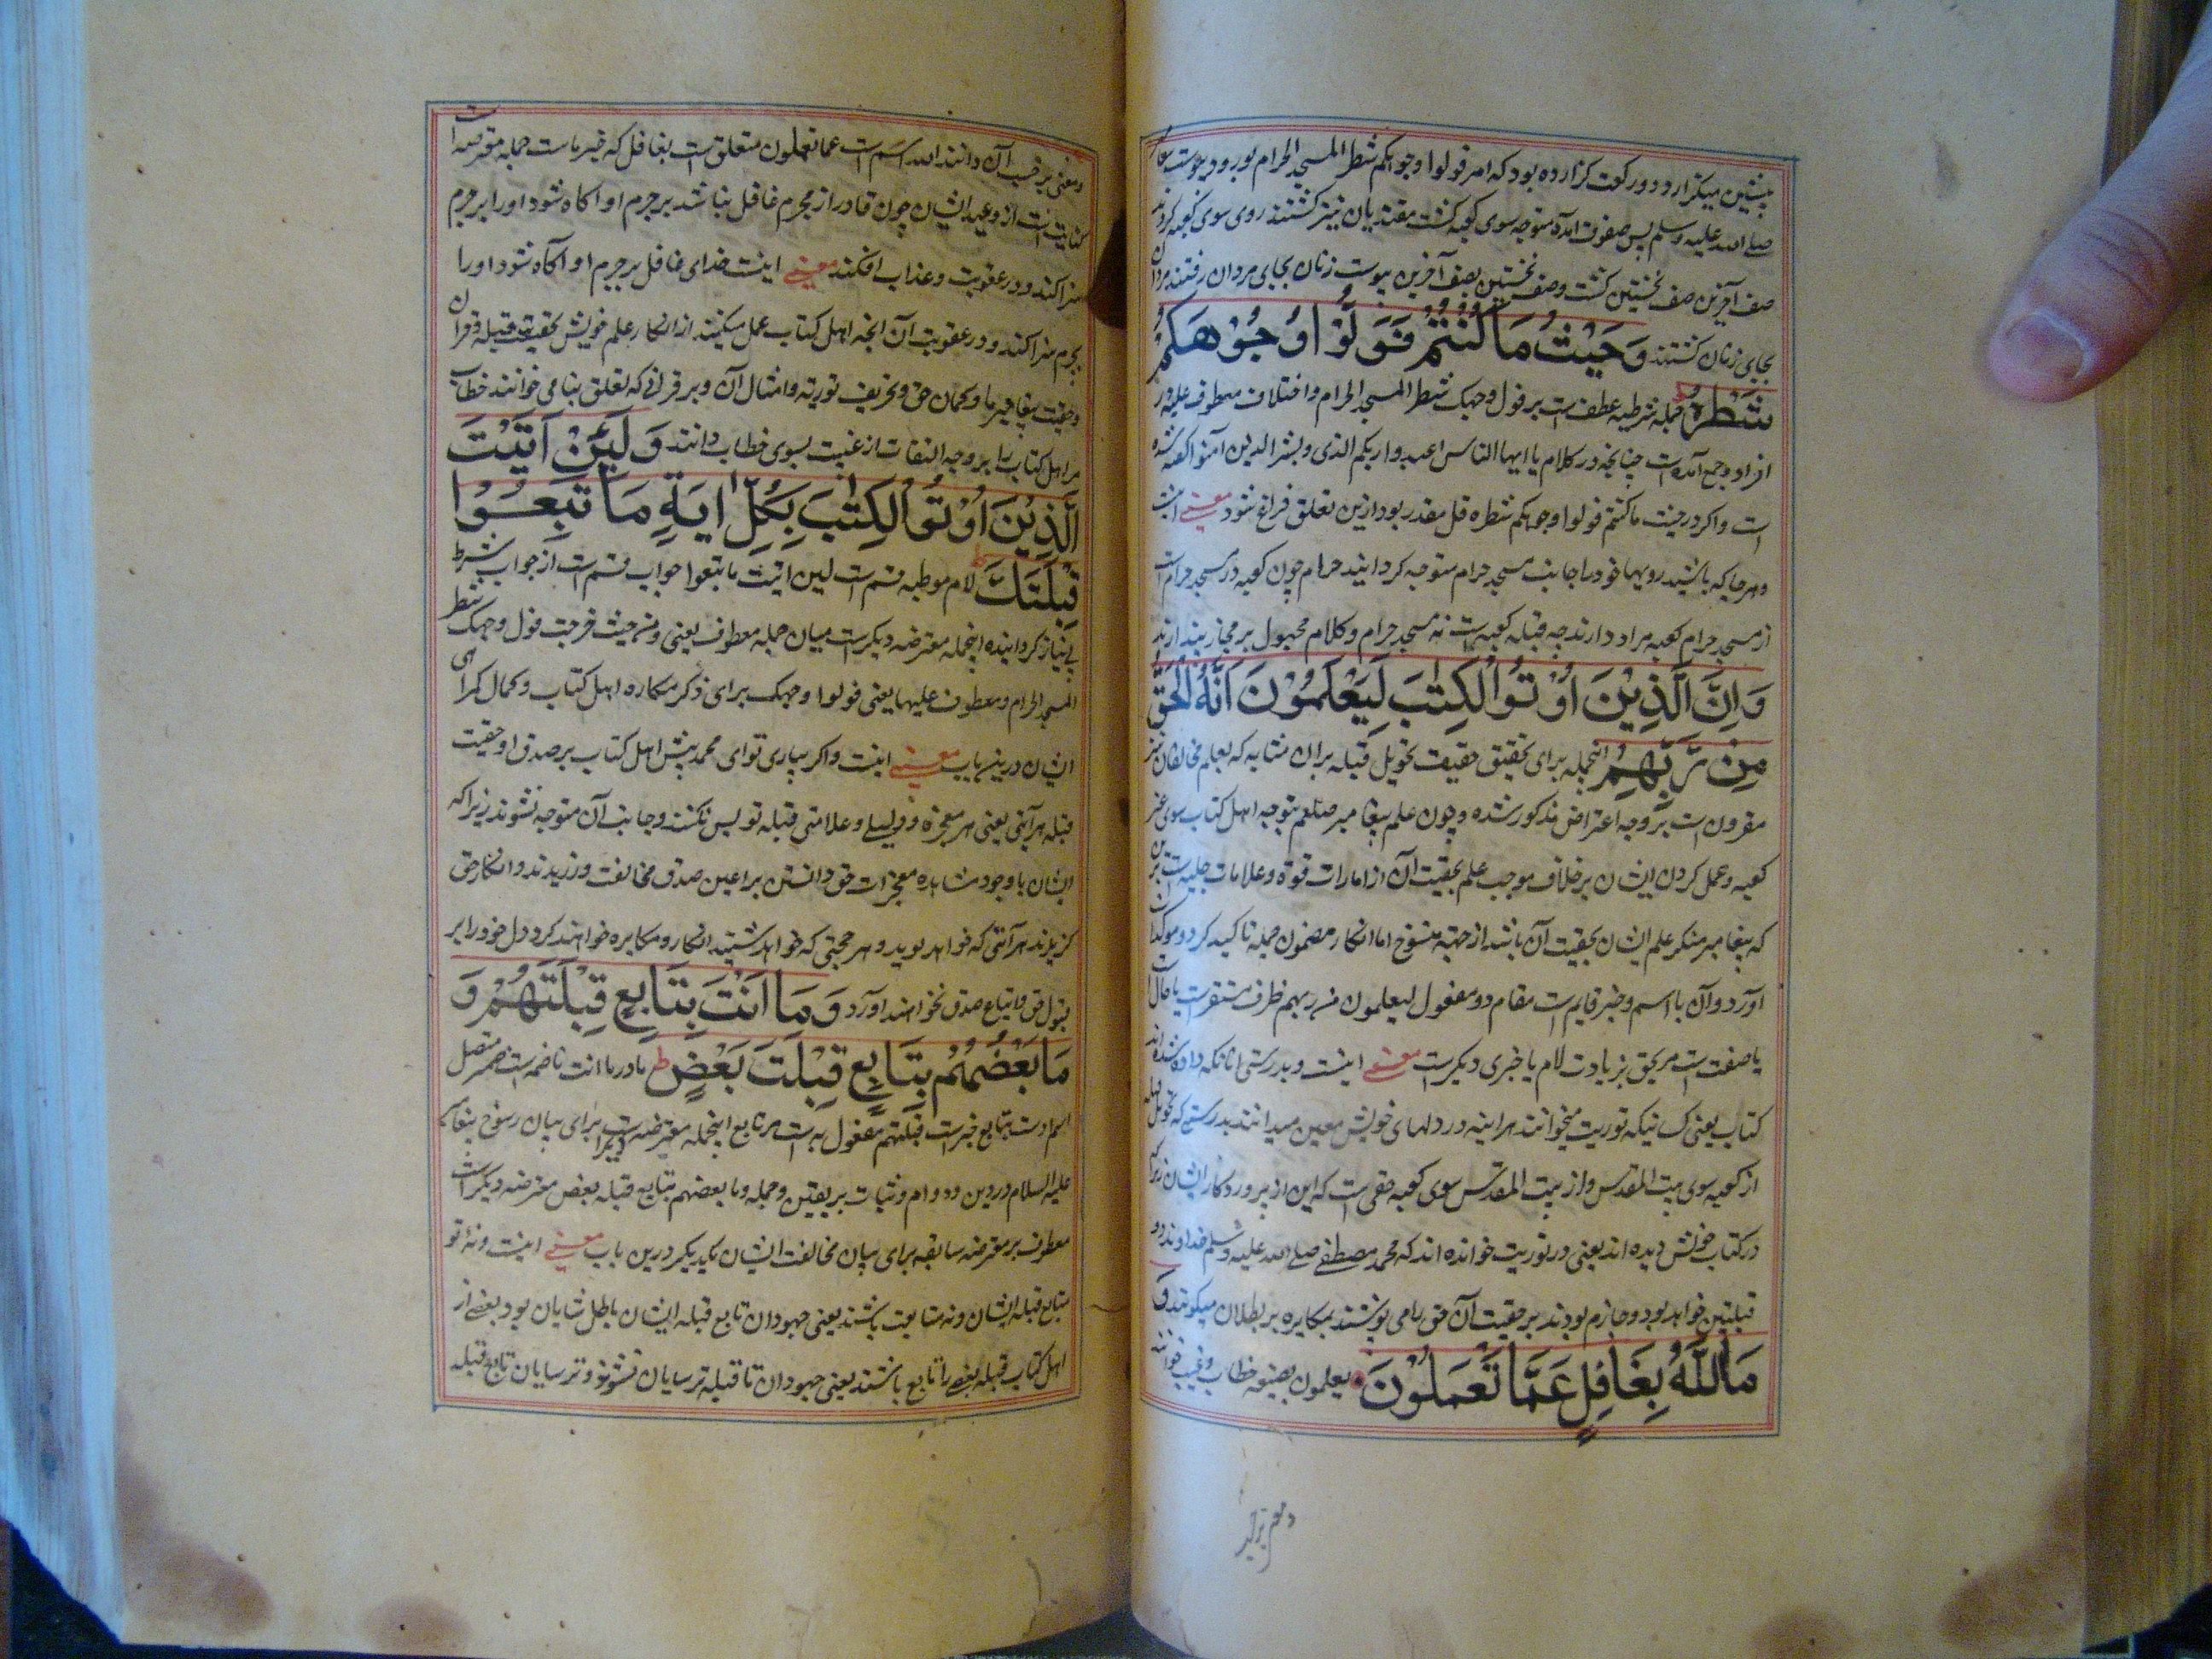 پیشین میگزارد و دو رکعت گزارده بود که امر فولوا وجوهکم شطر المسجد الحرام
صلی الله علیه وسلم پس صفوف آمده متوجه سوی کعبه گشت مقتدیان نیز گشتند روی سوی کعبه کردند
صف آخرین صف نخستین گشت وصف نخستین بصف آخرین پیوست زنان بجای مردان رفتند مردان
بجای زنان گشتند وَحَيْثُ مَا كُنْتُمْ فَوَلُّوْا وُجُوْهَكُمْ
شَطْرَهٗ جمله شرطیه عطف است بر فول وجهک شطر المسجد الحرام واختلاف معطوف علیه در
افراد وجمع آمده است چنانچه در کلام یا ایها الناس اعبدوا ربکم الذی وبشر الذین آمنوا گفته شده
است واگر در حیث ما کنتم فولوا وجوهکم شطره قل مقدر بود ازین تعلق فراغ شود معنی اینست
وهر جا که باشید رویهای خود را جانب مسجد حرام متوجه گردانید حرام چون کعبه در مسجد حرام است
از مسجد حرام کعبه مراد دارند چه قبله کعبه است نه مسجد حرام وکلام محمول بر مجاز پندارند
وَاِنَّ الَّذِيْنَ اُوْتُوا الْكِتٰبَ لَيَعْلَمُوْنَ اَنَّهُ الْحَقُّ
مِنْ رَّبِّهِمْ اینجمله برای تحقیق حقیقت تحویل قبله بران مشابه که بعلم مخالفان نیز
مقرون است بر وجه اعتراض مذکور شده وچون علم پیغامبر صلعم بتوجه اهل کتاب سوی غیر
کعبه وعمل کردن ایشان بر خلاف موجب علم بحقیت آن از امارات قوة وعلامات جلیه است برین
که پیغامبر منکر علم ایشان بحقیت آن باشد از جهته منسوخ اما انکار مضمون جمله تاکید کرد ومؤکد
آورد وان با اسم وخبر قایم است مقام دو مفعول لیعلمون من ربهم ظرف مستقر است یا حال
یا صفت است مر بحق بزیادت لام یا خبری دیگر است معنی اینست وبدرستی انانکه داده شده اند
کتاب یعنی کسانیکه توریت میخوانند هر اینه در دلهای خویش معین میدانند بدرستی که تحویل قبله
از کعبه سوی بیت المقدس واز بیت المقدس سوی کعبه حقی است که این از پروردگار ایشان
در کتاب خویش دیده اند یعنی در توریت خوانده اند که محمد مصطفی صلی الله علیه وسلم خداوند دو
قبلتین خواهد بود وجازم بودند بر حقیت آن حق را می پوشند بمکابره بر بطلان میکوشند وَ
مَا اللّٰهُ بِغَافِلٍ عَمَّا تَعْمَلُوْنَ یعلمون بصیغه خطاب وغیب خوانند
ومعنی بر غیب آن دانند الله اسم است عما تعملون متعلق است بغافل که خبر ما ست جمله معترضه است
کنایت است از وعید ایشان چون قادر از مجرم غافل نباشد بر جرم او آگاه شود او را بر جرم
سزا کند ودر عقوبت وعذاب افکند معنی اینست خدای غافل بر جرم او آگاه شود او را
بجرم سزا کند ودر عقوبت آن آنچه اهل کتاب عمل میکنند از انکار علم خویش بحقیقت قبله وقرآن
وحقیت پیغامبر ما وکتمان حق وتحریف توریة وامثال آن وبر قرآتی که تعلق بتا می خوانند خطاب
مر اهل کتاب را بر وجه التفات از غیبت بسوی خطاب دانند وَ لَئِنْ اَتَيْتَ
الَّذِيْنَ اُوْتُوا الْكِتٰبَ بِكُلِّ اٰيَةٍ مَا تَبِعُوْا
قِبْلَتَكَ لام موطئه قسم است لئن اتیت ما تبعوا جواب قسم است از جواب شرط
بی نیاز گردانیده اینجمله معترضه دیگر است میان جمله معطوف یعنی ومن حیث خرجت فول وجهک شطر
المسجد الحرام ومعطوف علیها یعنی فولوا وجهک برای ذکر مکابره اهل کتاب وکمال گمراهی
ایشان درین باب معنی اینست واگر بیاری تو ای محمد پیش اهل کتاب بر صدق او حقیت
قبله هر آیتی یعنی هر معجزه ودلیلی وعلامتی قبله تو پس نکنند وجانب آن متوجه نشوند زیرا که
ایشان با وجود مشاهده معجزات حق دانستن بر اعین صدق مخالفت ورزیدند وانکار حق
گزیدند هر آیتی که خواهد بوید وهر حجتی که خواهد شنید انکار ومکابره خواهند کرد ودل خود را بر
قبول حق واتباع صدق نخواهند آورد وَ مَا اَنْتَ بِتَابِعٍ قِبْلَتَهُمْ وَ
مَا بَعْضُهُمْ بِتَابِعٍ قِبْلَتَ بَعْضٍ ما در ما انت نافیه است ضمیر متصل
اسم اوست بتابع خبر است قبلتهم مفعول به است مر تابع اینجمله معترضه است دیگر برای بیان رسوخ پیغامبر
علیه السلام در دین ودوام وثبات بر یقین وجمله وما بعضهم بتابع قبلة بعض معترضه دیگر است
معطوف بر معترضه سابقه برای بیان مخالفت ایشان یکدیگر درین باب معنی اینست ونه تو
متابع قبله ایشان ونه متابعت باشند یعنی جهودان تابع قبله ایشان باطل شایان بود بعضی از
اهل کتاب قبله بعضی را تابع باشند یعنی جهودان تا قبله ترسایان نشوند وترسایان تابع قبله